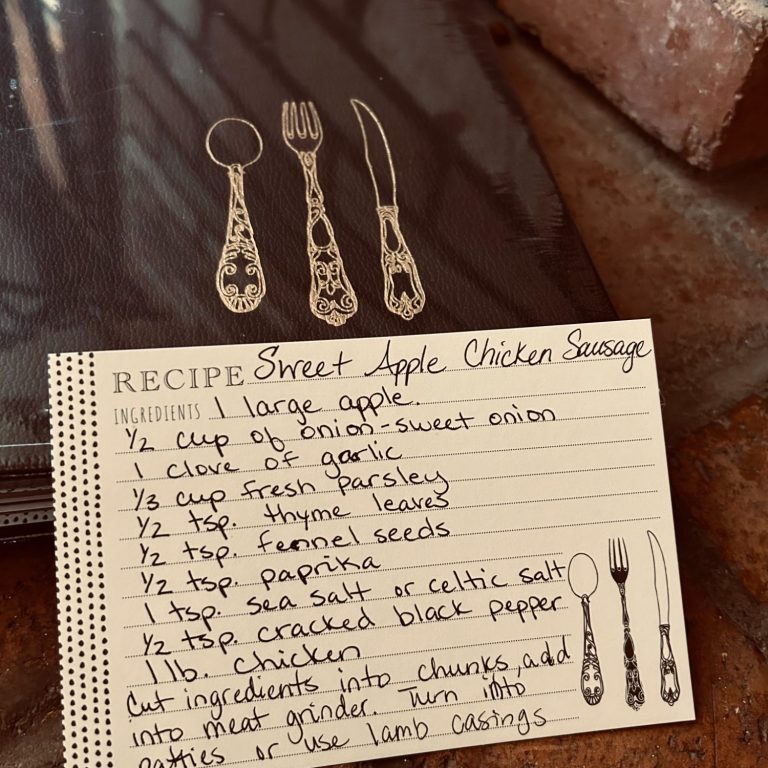 RECIPE Sweet Apple Chicken Sausage
INGREDIENTS 1 large apple.
1/2 cup of onion-sweet onion
1 clove of garlic
1/3 cup fresh parsley
1/2 tsp. thyme leaves
1/2 tsp. fennel seeds
1/2 tsp. paprika
1 tsp. sea salt or celtic salt
1/2 tsp. cracked black pepper
1 lb. chicken
Cut ingredients into chunks, add
into meat grinder. Turn into
patties or use lamb casings